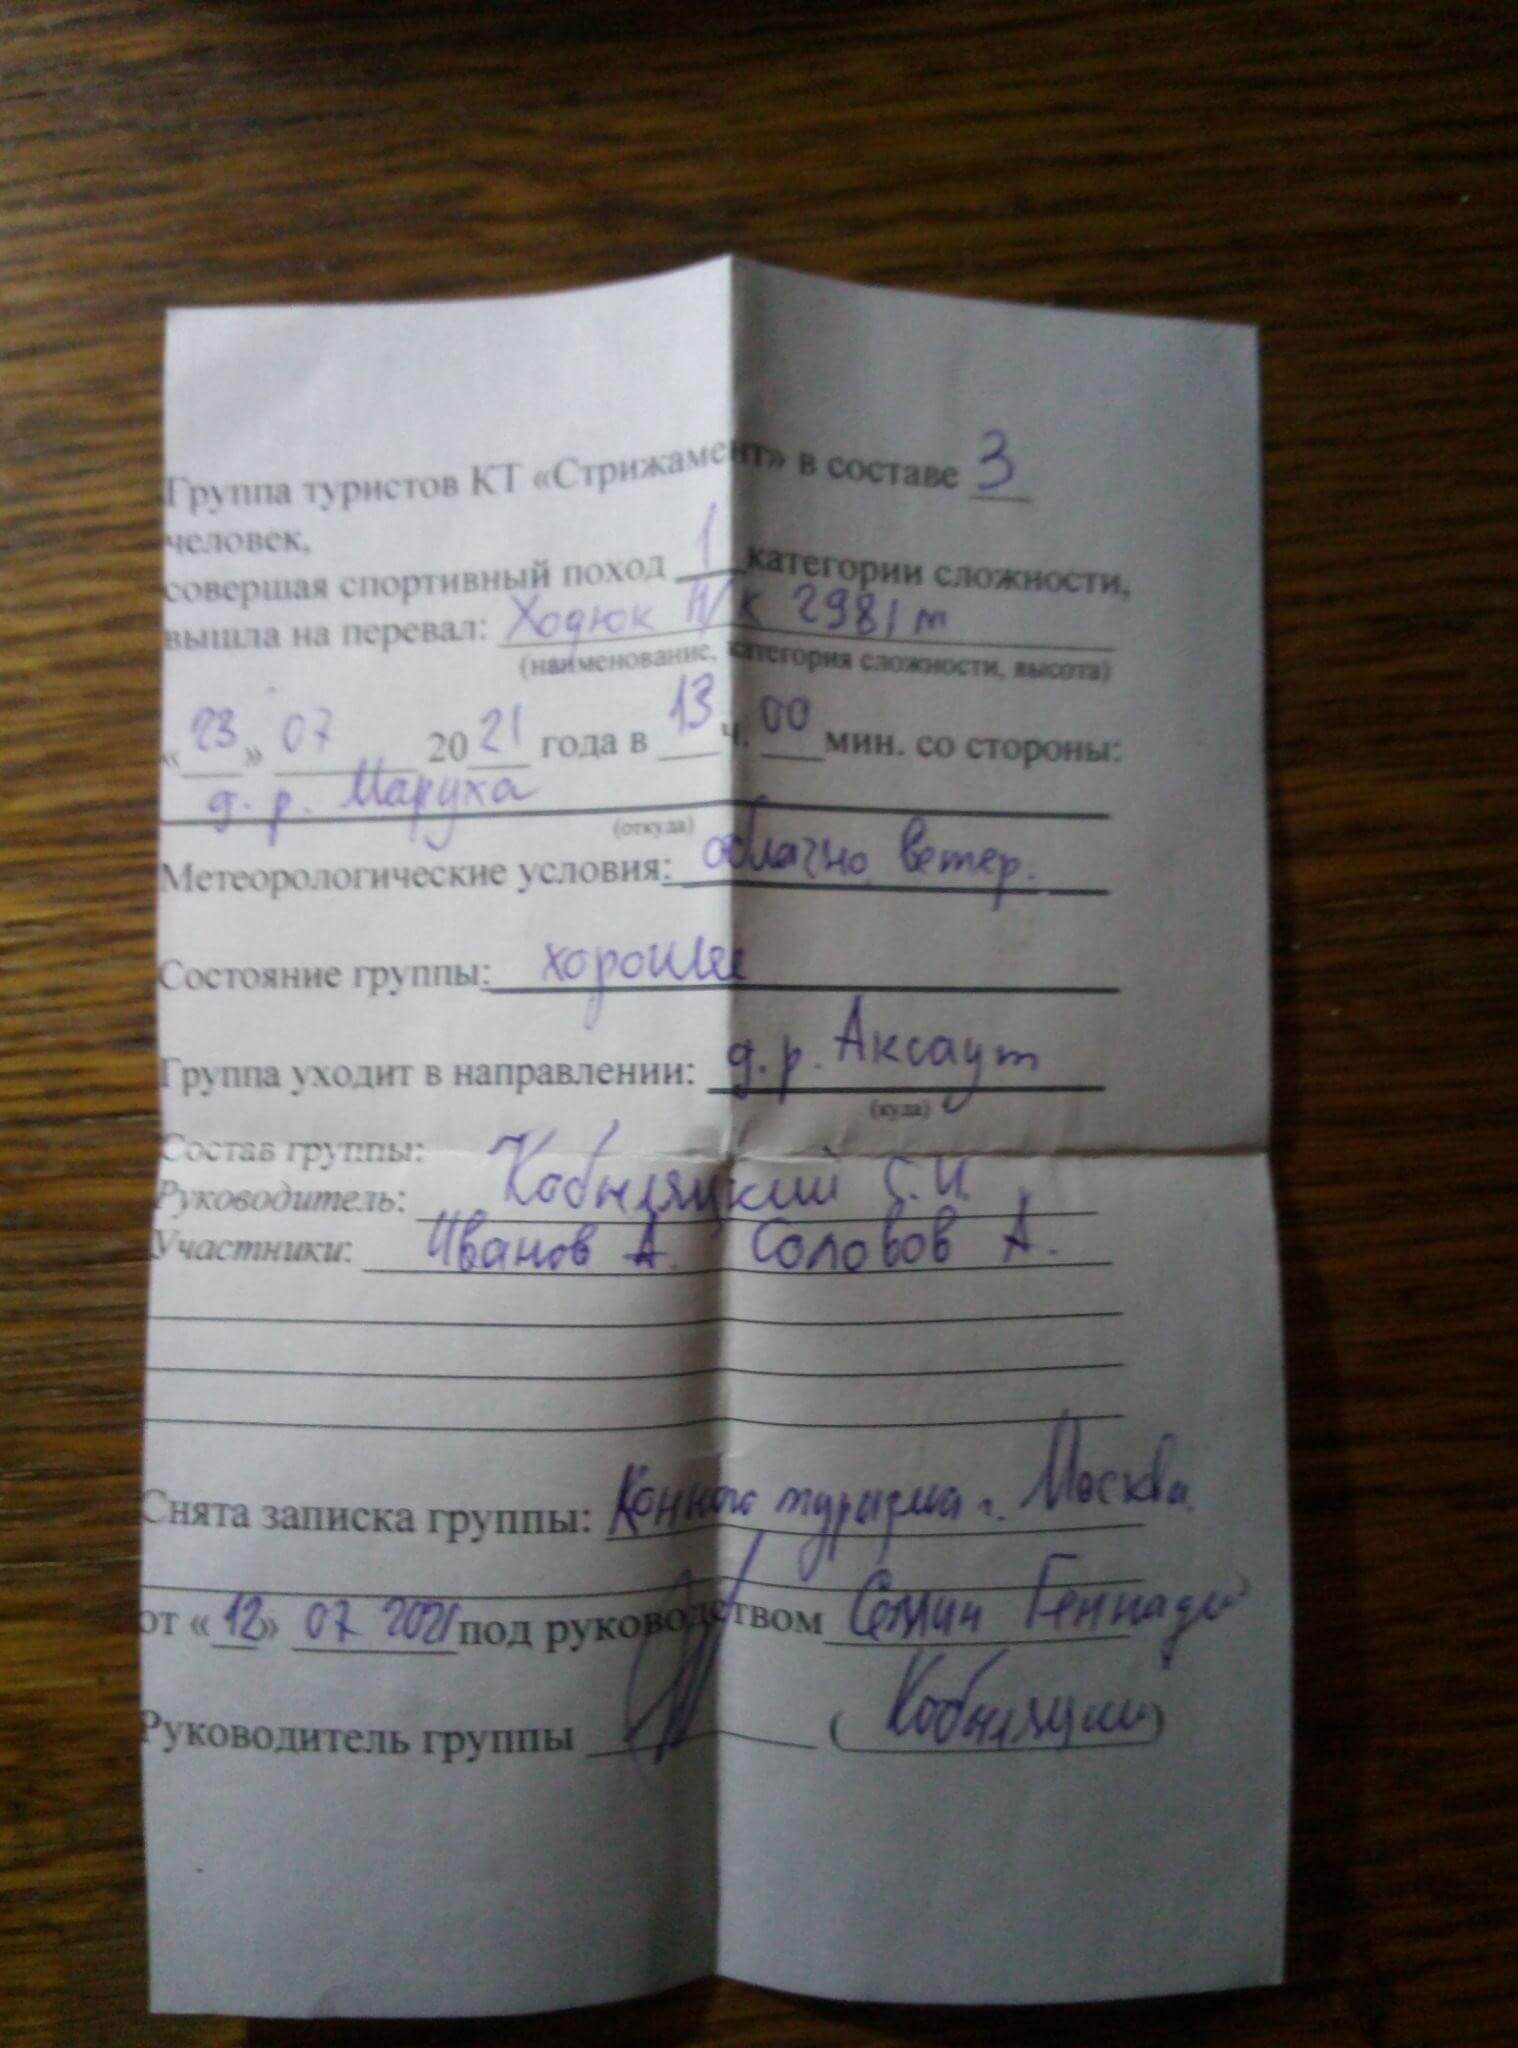 Группа туристов КТ «Стрижамент» в составе 3
человек,
совершая спортивный поход 1 категории сложности,
вышла на перевал: Ходюк Н/К 2981 м
(наименование, категория сложности, высота)
«23» 07 2021 года в 13 ч. 00 мин. со стороны:
д. р. Маруха
(откуда)
Метеорологические условия: облачно, ветер.
Состояние группы: хорошее
Группа уходит в направлении: д. р. Аксаут
(куда)
Состав группы:
Руководитель: Кобыляцкий С.И.
Участники: Иванов А. Соловов А.
Снята записка группы: Конного туризма г. Москва.
от «12» 07 2021 под руководством Семин Геннадий
Руководитель группы (Кобыляцкий)